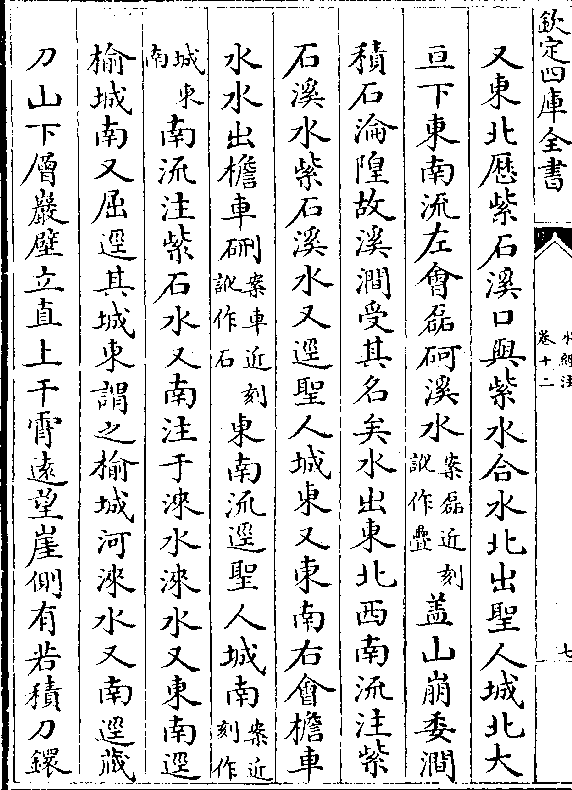 欽定四庫全書
水經注
卷十二
七
又東北歷紫石溪口與紫水合水北出聖人城北大
亘下東南流左會磊砢溪水案磊近刻訛作疊蓋山崩委澗
積石淪隍故溪澗受其名矣水出東北西南流注紫
石溪水紫石溪水又逕聖人城東又東南右會檐車
水水出檐車硎案車近刻訛作石東南流逕聖人城南案近刻作
城東南南流注紫石水又南注于淶水淶水又東南逕
榆城南又屈逕其城東謂之榆城河淶水又南逕藏
刀山下層巖壁立直上干霄遠望崖側有若積刀鐶